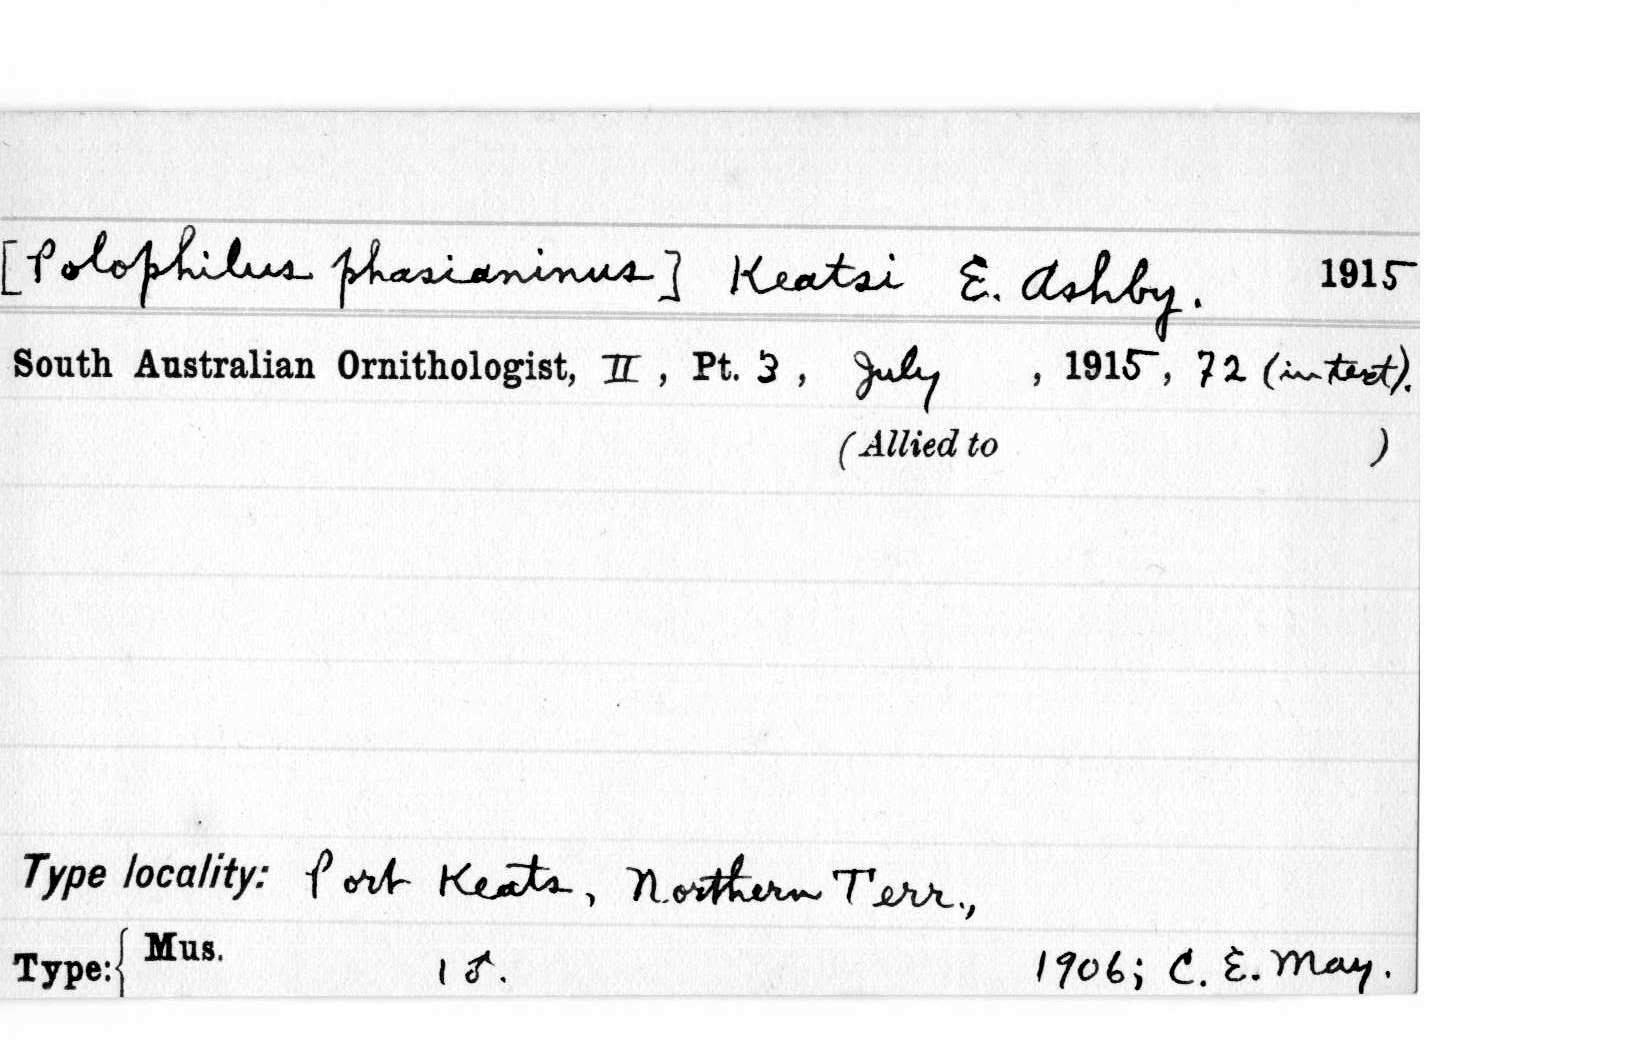 [Polophilus phasianinus] Keatsi E. Ashby. 1915
South Australian Ornithologist, II, Pt. 3, July, 1915, 72 (in text).
(Allied to )
Type locality: Port Keats, Northern Terr.,
Type: { Mus. 1 ♂. 1906; C. E. May.